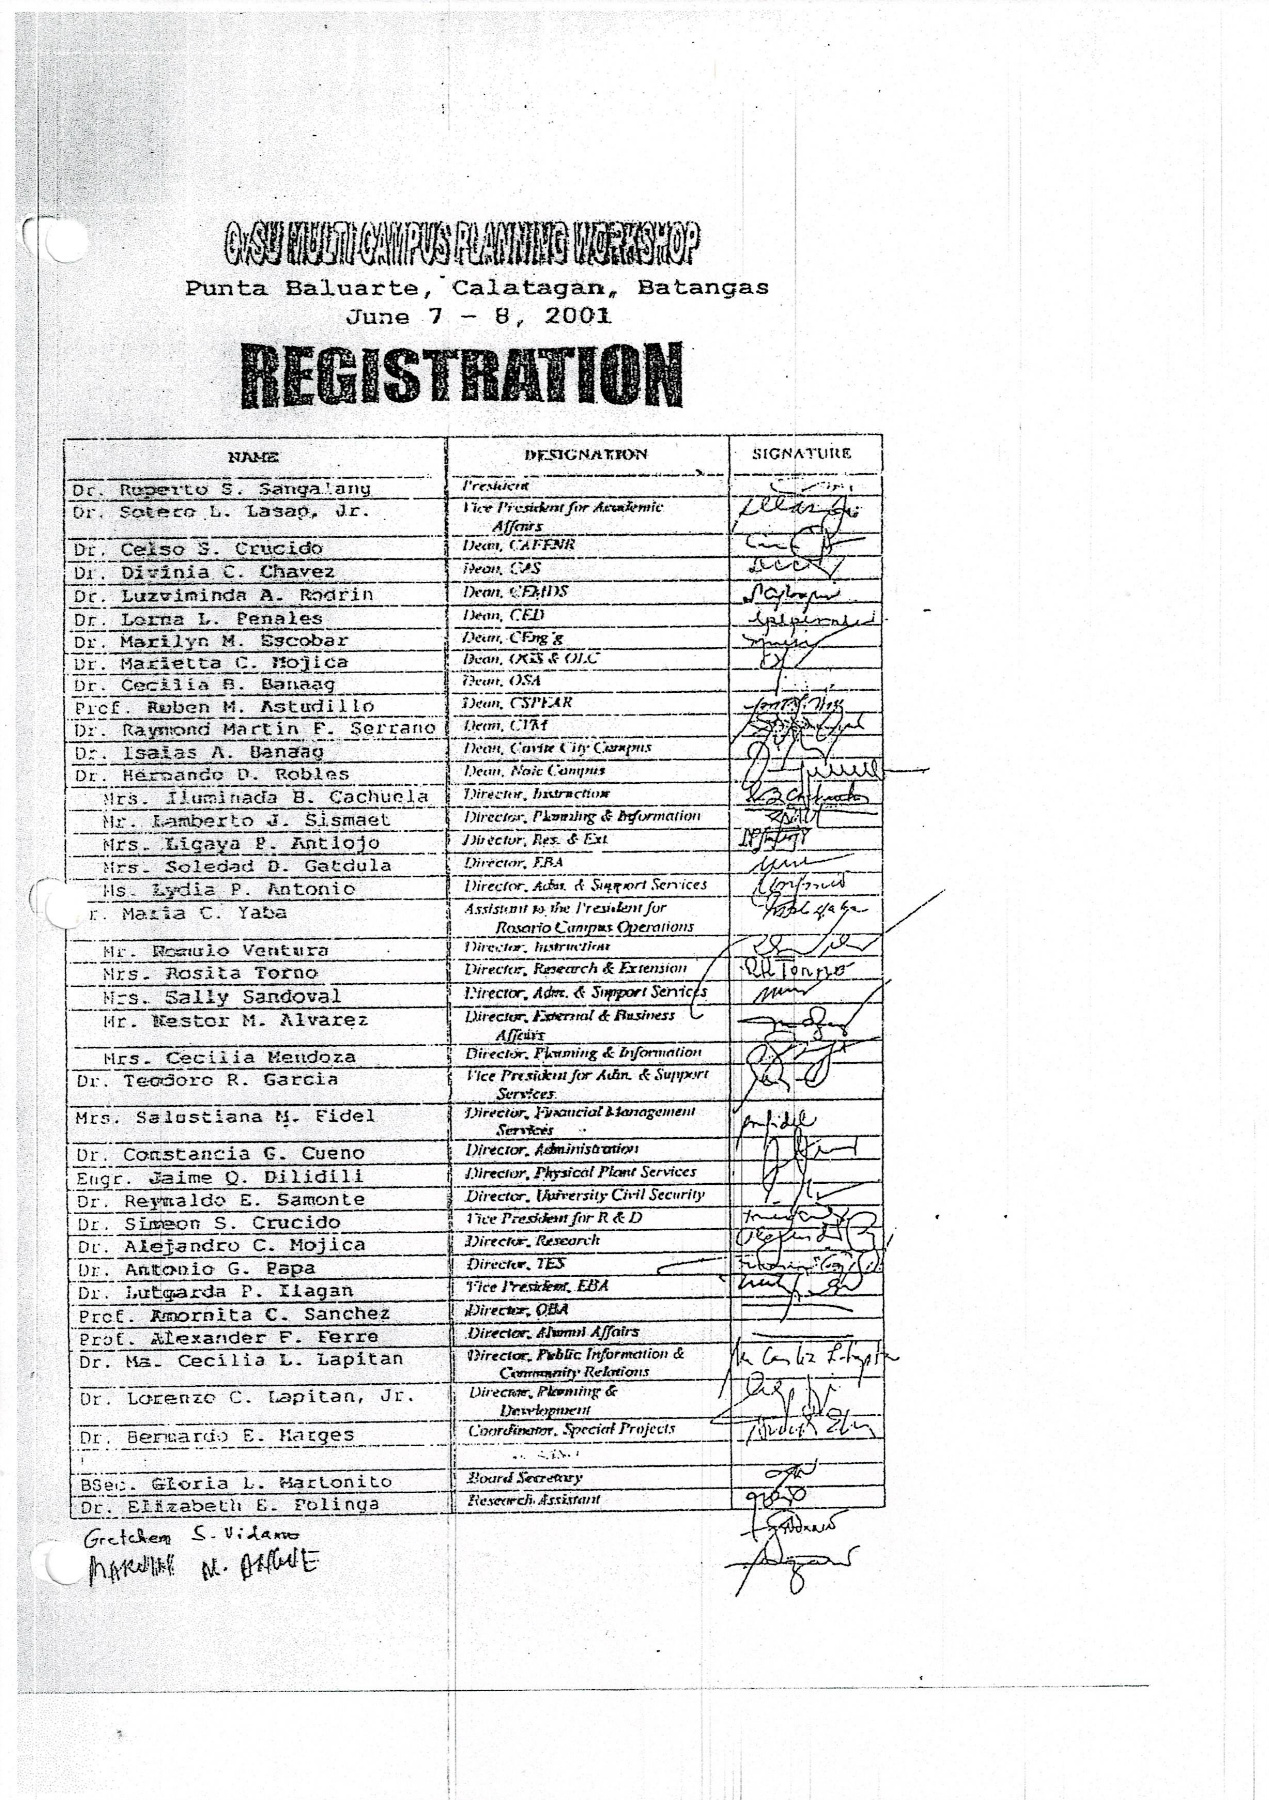 CvSU MULTI CAMPUS PLANNING WORKSHOP
Punta Baluarte, Calatagan, Batangas
June 7 - 8, 2001
REGISTRATION
NAME DESIGNATION SIGNATURE
Dr. Ruperto S. Sangalang President
Dr. Sotero L. Lasap, Jr. Vice President for Academic
Affairs
Dr. Celso S. Crucido Dean, CAFENR
Dr. Divinia C. Chavez Dean, CAS
Dr. Luzviminda A. Rodrin Dean, CEMDS
Dr. Lorna L. Penales Dean, CED
Dr. Marilyn M. Escobar Dean, CEng'g
Dr. Marietta C. Mojica Dean, OGS & OLC
Dr. Cecilia B. Banaag Dean, OSA
Prof. Ruben M. Astudillo Dean, CSPEAR
Dr. Raymond Martin F. Serrano Dean, CVM
Dr. Isaias A. Banaag Dean, Cavite City Campus
Dr. Hernando D. Robles Dean, Naic Campus
Mrs. Iluminada B. Cachuela Director, Instruction
Mr. Lamberto J. Sismaet Director, Planning & Information
Mrs. Ligaya P. Antiojo Director, Res. & Ext
Mrs. Soledad D. Gatdula Director, EBA
Ms. Lydia P. Antonio Director, Adm. & Support Services
r. Maria C. Yaba Assistant to the President for
Rosario Campus Operations
Mr. Romulo Ventura Director, Instruction
Mrs. Rosita Torno Director, Research & Extension
Mrs. Sally Sandoval Director, Adm. & Support Services
Mr. Nestor M. Alvarez Director, External & Business
Affairs
Mrs. Cecilia Mendoza Director, Planning & Information
Dr. Teodoro R. Garcia Vice President for Adm. & Support
Services
Mrs. Salustiana M. Fidel Director, Financial Management
Services
Dr. Constancia G. Cueno Director, Administration
Engr. Jaime Q. Dilidili Director, Physical Plant Services
Dr. Reynaldo E. Samonte Director, University Civil Security
Dr. Simeon S. Crucido Vice President for R & D
Dr. Alejandro C. Mojica Director, Research
Dr. Antonio G. Papa Director, TES
Dr. Lutgarda P. Ilagan Vice President, EBA
Prof. Amornita C. Sanchez Director, OBA
Prof. Alexander F. Ferre Director, Alumni Affairs
Dr. Ma. Cecilia L. Lapitan Director, Public Information &
Community Relations
Dr. Lorenzo C. Lapitan, Jr. Director, Planning &
Development
Dr. Bernardo E. Harges Coordinator, Special Projects
BSec. Gloria L. Martonito Board Secretary
Dr. Elizabeth E. Polinga Research Assistant
Gretchen S. Vidamo